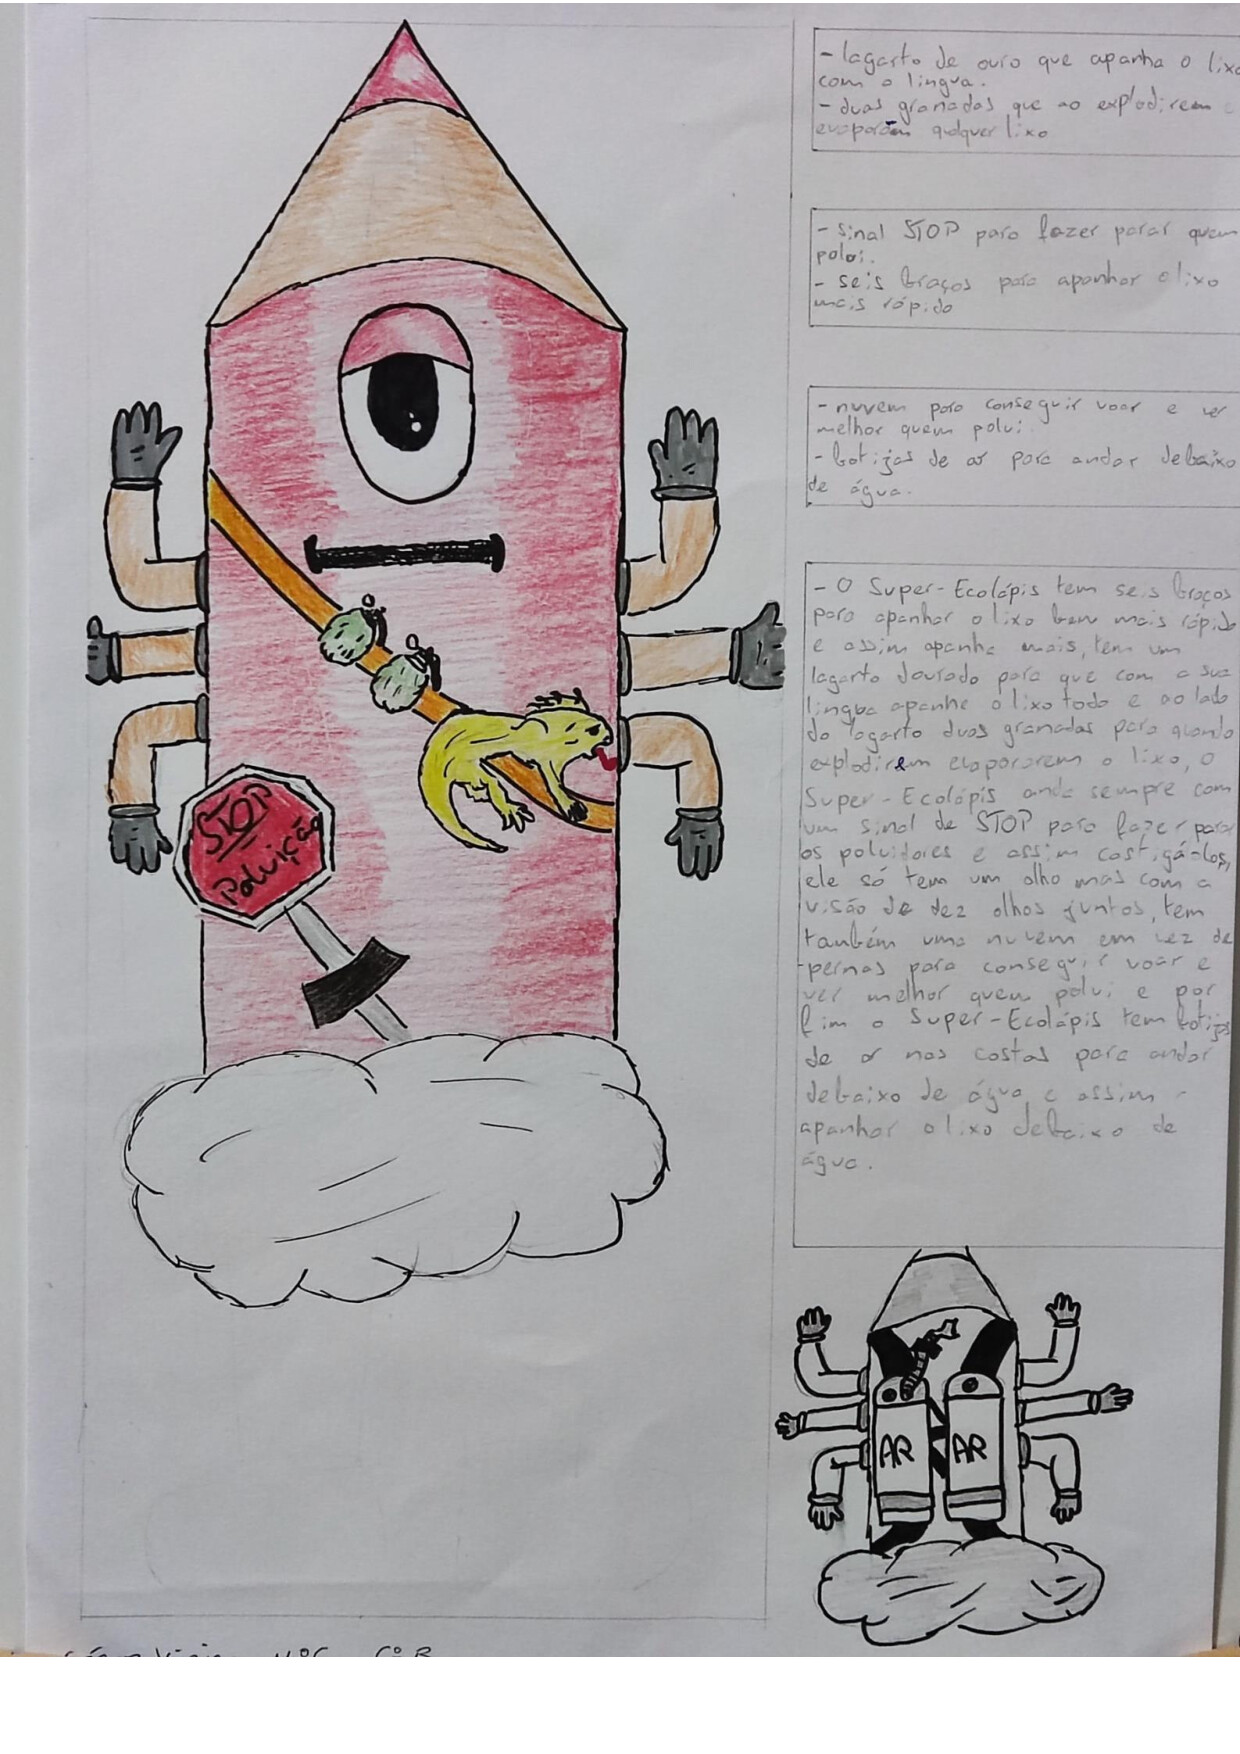 - lagarto de ouro que apanha o lixo
com a lingua.
- duas granadas que ao explodirem
evaporam qualquer lixo
- sinal STOP para fazer parar quem
polui.
- seis braços para apanhar o lixo
mais rápido
- nuvem para conseguir voar e ver
melhor quem polui.
- botijas de ar para andar debaixo
de água.
- O Super-Ecolápis tem seis braços
para apanhar o lixo bem mais rápido
e assim apanha mais, tem um
lagarto dourado para que com a sua
lingua apanhe o lixo todo e ao lado
do lagarto duas granadas para quando
explodirem evapororem o lixo, o
Super-Ecolápis anda sempre com
um sinal de STOP para fazer parar
os poluidores e assim castigá-los,
ele só tem um olho mas com a
visão de dez olhos juntos, tem
também uma nuvem em vez de
pernas para conseguir voar e
ver melhor quem polui e por
fim o Super-Ecolápis tem botijas
de ar nas costas para andar
debaixo de água e assim
apanhar o lixo debaixo de
água.
STOP
Poluição
AR AR